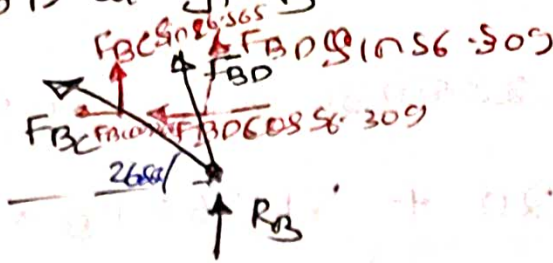 FBC Sin 26.565
FBD Sin 56.309
FBD
FBC
FBD COS 56.309
RB